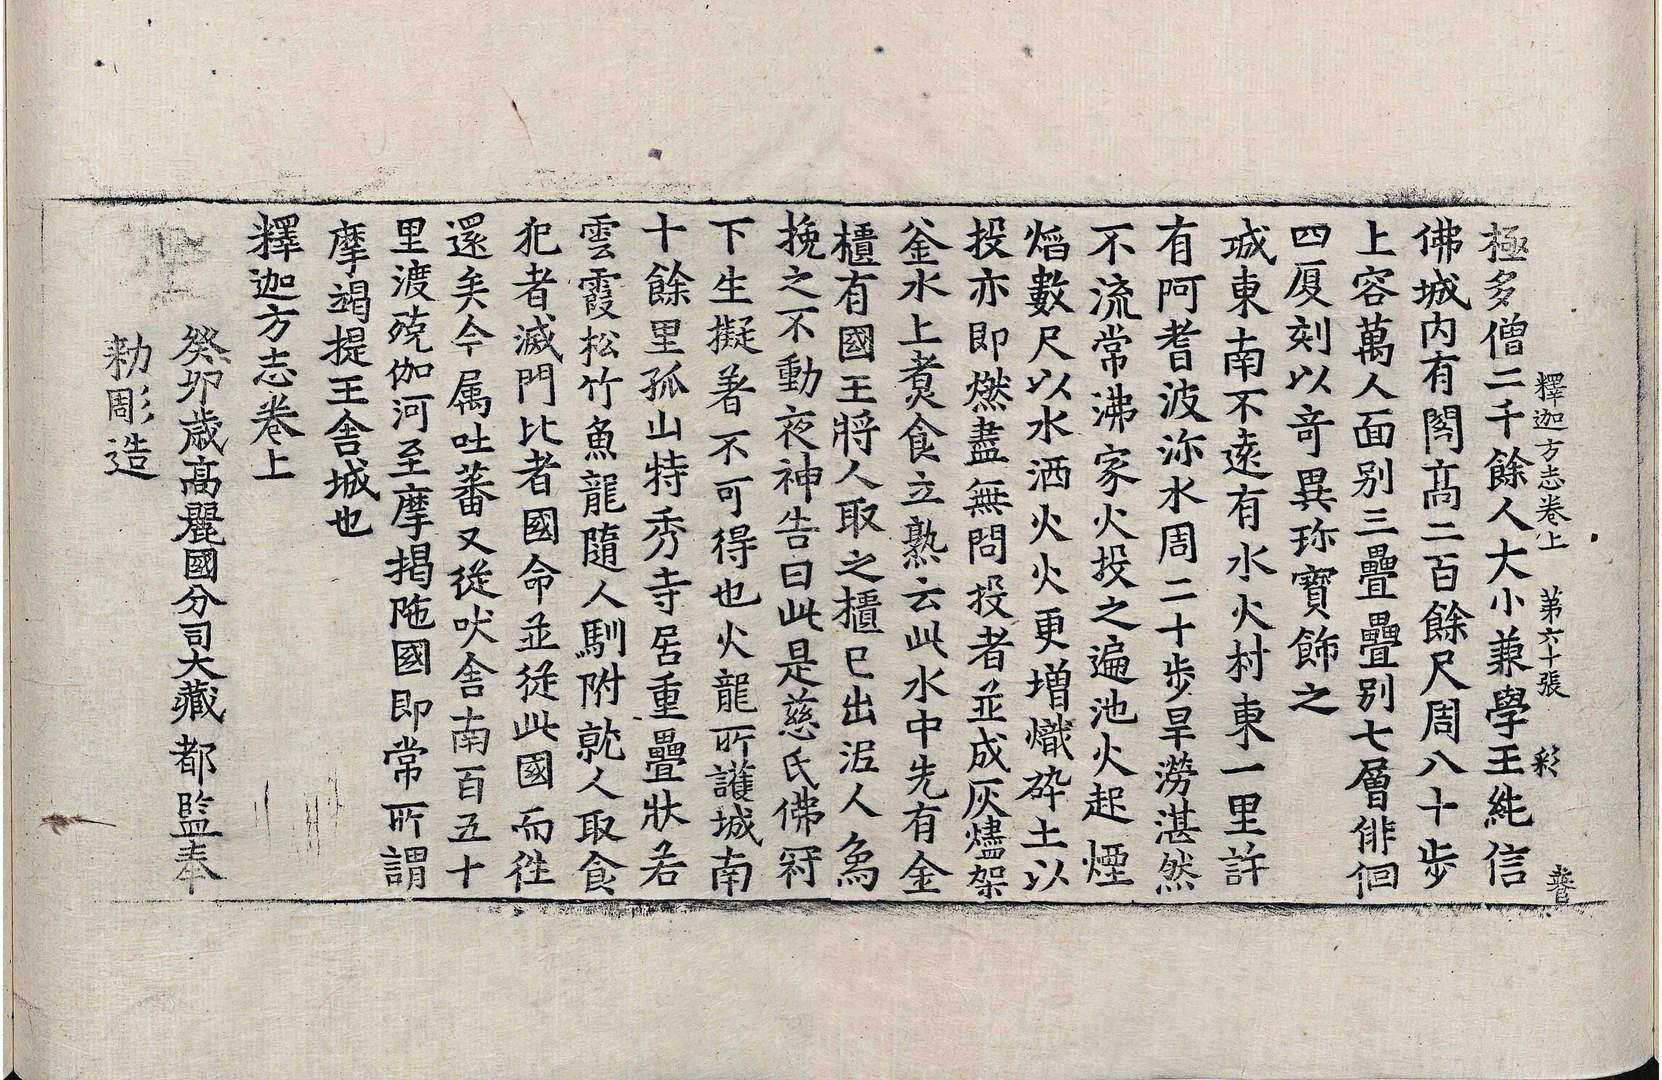 釋迦方志卷上 第六十張 彩
極多僧二千餘人大小兼學王純信
佛城内有閣高二百餘尺周八十步
上容萬人面别三疊疊别七層俳佪
四厦刻以竒異珎寶飾之
城東南不遠有水火村東一里許
有阿耆波沵水周二十步旱澇湛然
不流常沸家火投之遍池火起煙
焰數尺以水洒火火更增熾碎土以
投亦即燃盡無問投者並成灰燼架
釜水上煑食立熟云此水中先有金
櫃有國王將人取之櫃已出泥人象
挽之不動夜神告曰此是慈氏佛冠
下生擬著不可得也火龍所護城南
十餘里孤山特秀寺居重疊狀若
雲霞松竹魚龍隨人馴附就人取食
犯者滅門比者國命並從此國而往
還矣今属吐蕃又從吠舍南百五十
里渡殑伽河至摩揭陁國即常所謂
摩竭提王舍城也
釋迦方志卷上
癸卯歳高麗國分司大藏都監奉
勑彫造